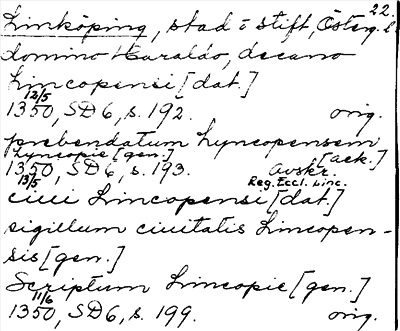 22.
Linköping, stad i stift, Österg. l.
domino Haraldo, decano
Lincopensi [dat.]
12/5
1350, SD 6, s. 192. orig.
prebendatum Lyncopensem
[ack.]
Lyncopie [gen.]
1350, SD 6, s. 193. Avskr.
13/5 Reg. Eccl. Linc.
ciui Lincopensi [dat.]
sigillum ciuitatis Lincopen-
sis [gen.]
Scriptum Lincopie [gen.]
11/6
1350, SD 6, s. 199. orig.